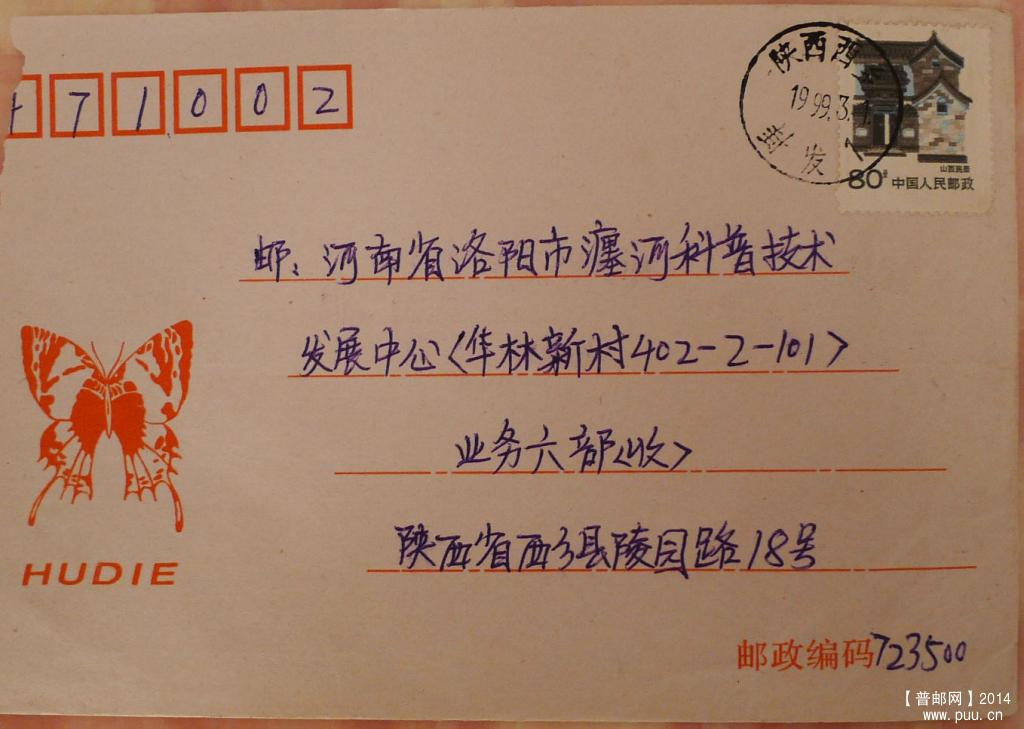 471002
陕西西乡
1999.3.1.
发
山西民居
80分 中国人民邮政
邮:河南省洛阳市瀍河科普技术
发展中心<华林新村402-2-101>
业务六部<收>
陕西省西乡县陵园路18号
HUDIE
邮政编码723500
【普邮网】2014
www.puu.cn